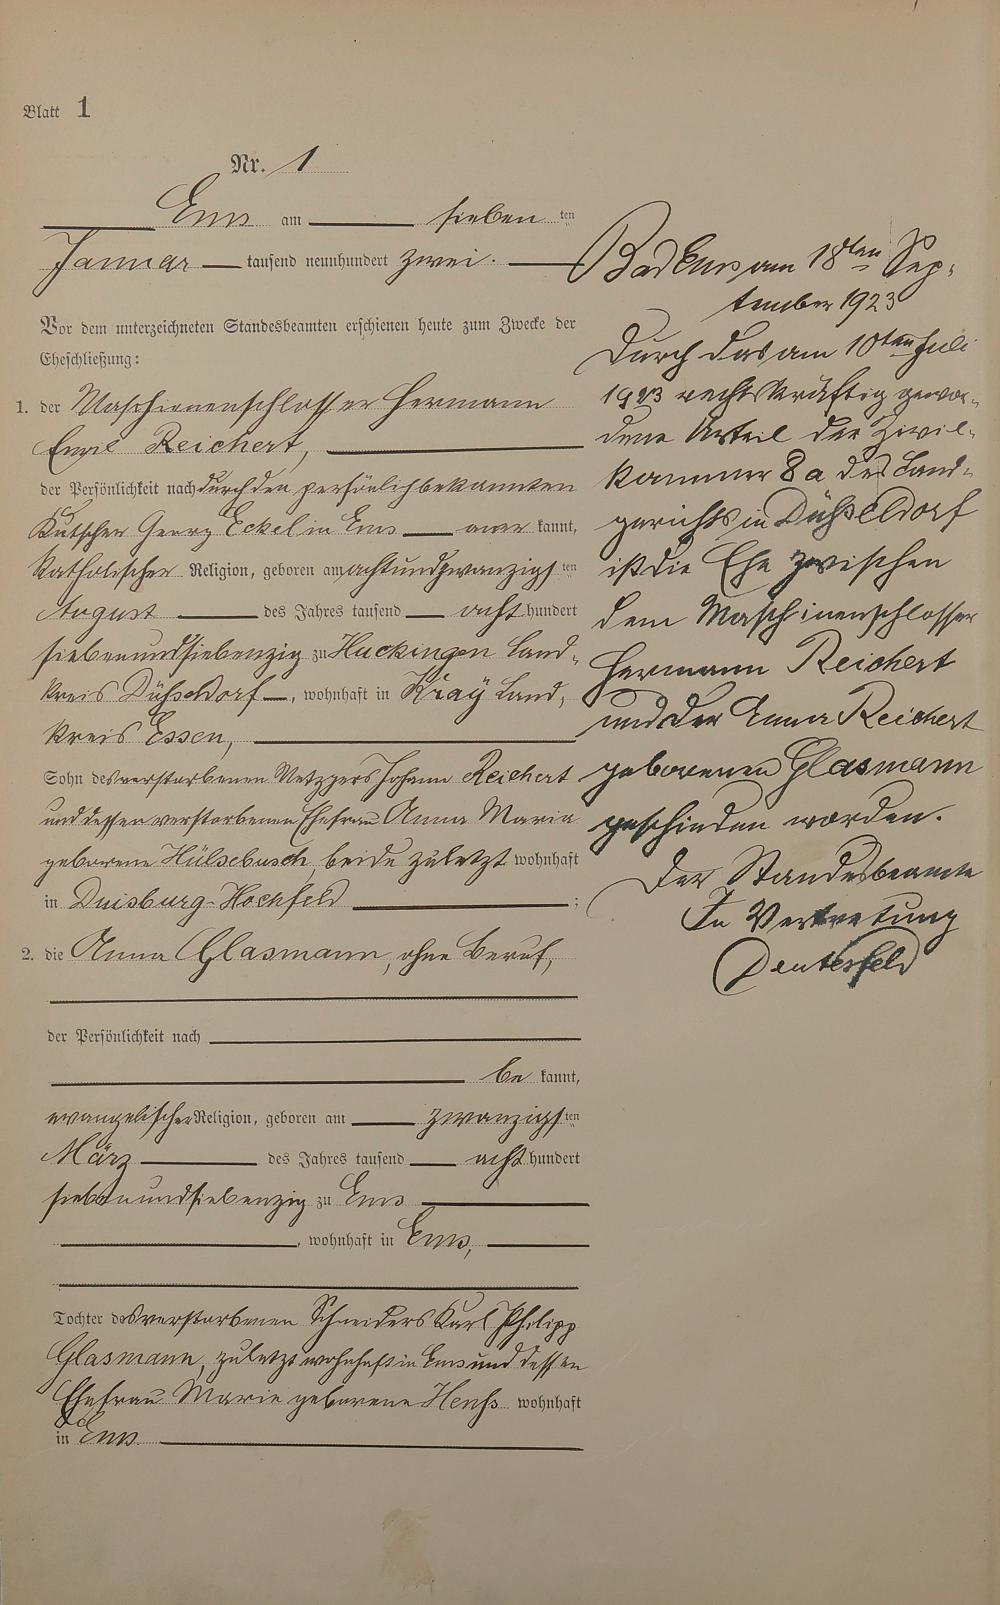 Blatt 1
Nr. 1
Ems am sieben ten
Januar tausend neunhundert zwei.
Vor dem unterzeichneten Standesbeamten erschienen heute zum Zwecke der
Eheschließung:
1. der Maschienenschlosser Hermann
Emil Reichert,
der Persönlichkeit nach durch den persönlich bekannten
Kutscher Georg Eckel in Ems aner kannt,
katholischer Religion, geboren am achtundzwanzigs ten
August des Jahres tausend acht hundert
siebenundsiebenzig zu Huckingen Land-
kreis Düsseldorf, wohnhaft in Kray Land-
kreis Essen,
Sohn des verstorbenen Metzgers Johann Reichert
und dessen verstorbenen Ehefrau Anna Maria
geborene Hülsebusch, beide zuletzt wohnhaft
in Duisburg-Hochfeld ;
2. die Anna Glasmann, ohne Beruf,
der Persönlichkeit nach
be kannt,
evangelischer Religion, geboren am zwanzigs ten
März des Jahres tausend acht hundert
siebenundsiebenzig zu Ems
, wohnhaft in Ems,
Tochter des verstorbenen Schneiders Karl Philipp
Glasmann, zuletzt wohnhaft in Ems und dessen
Ehefrau Marie geborene Henß wohnhaft
in Ems
Bad Ems, am 18ten Sep-
tember 1923
Durch das am 10ten Juli
1923 rechtskräftig gewor-
dene Urteil der Zivil-
kammer 8a des Land-
gerichts in Düsseldorf
ist die Ehe zwischen
dem Maschinenschlosser
Hermann Reichert
und der Anna Reichert
geborenen Glasmann
geschieden worden.
Der Standesbeamte
In Vertretung